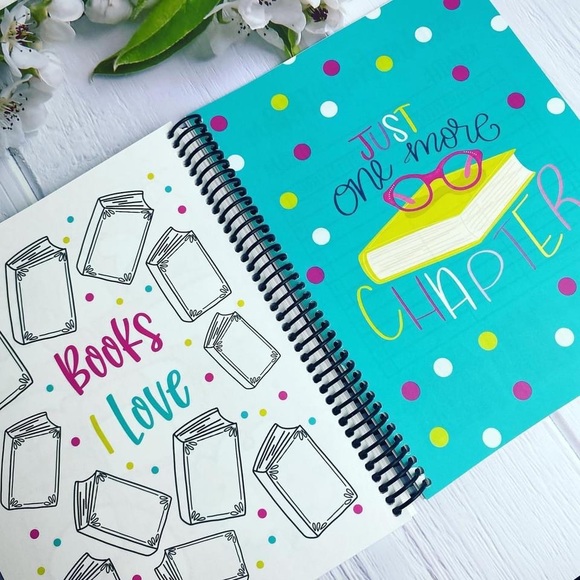 Books
I Love
JUST
one more
CHAPTER